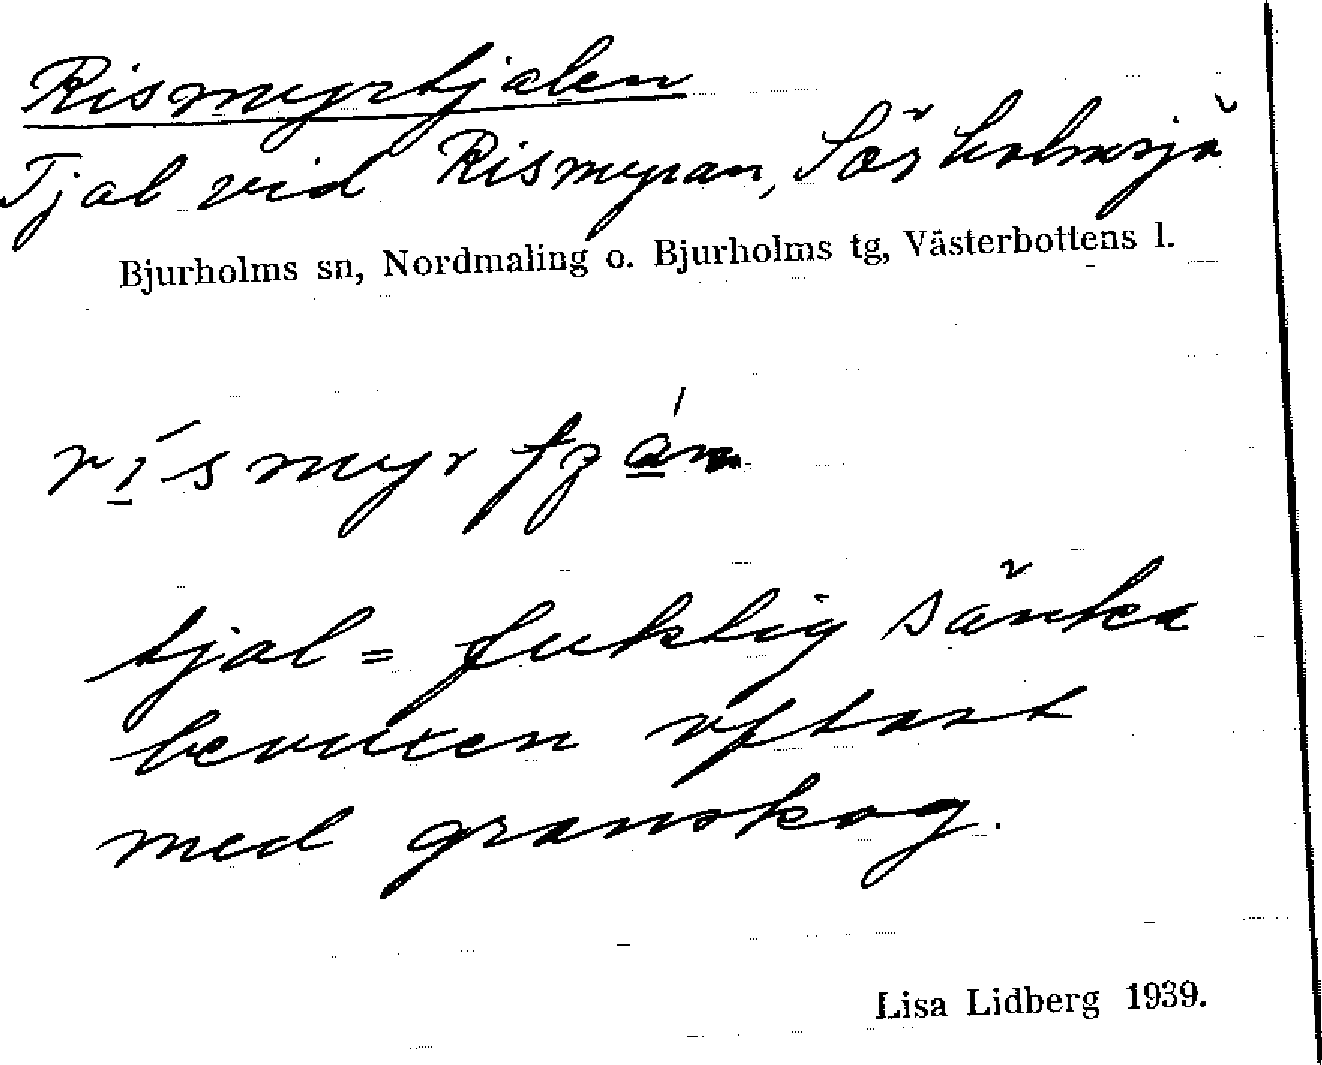 Rismyrtjalen
Tjal vid Rismyran, Sörholmsjö
Bjurholms sn, Nordmaling o. Bjurholms tg, Västerbottens l.
tjal = fuktig sänka
bevuxen oftast
med granskog.
Lisa Lidberg 1939.